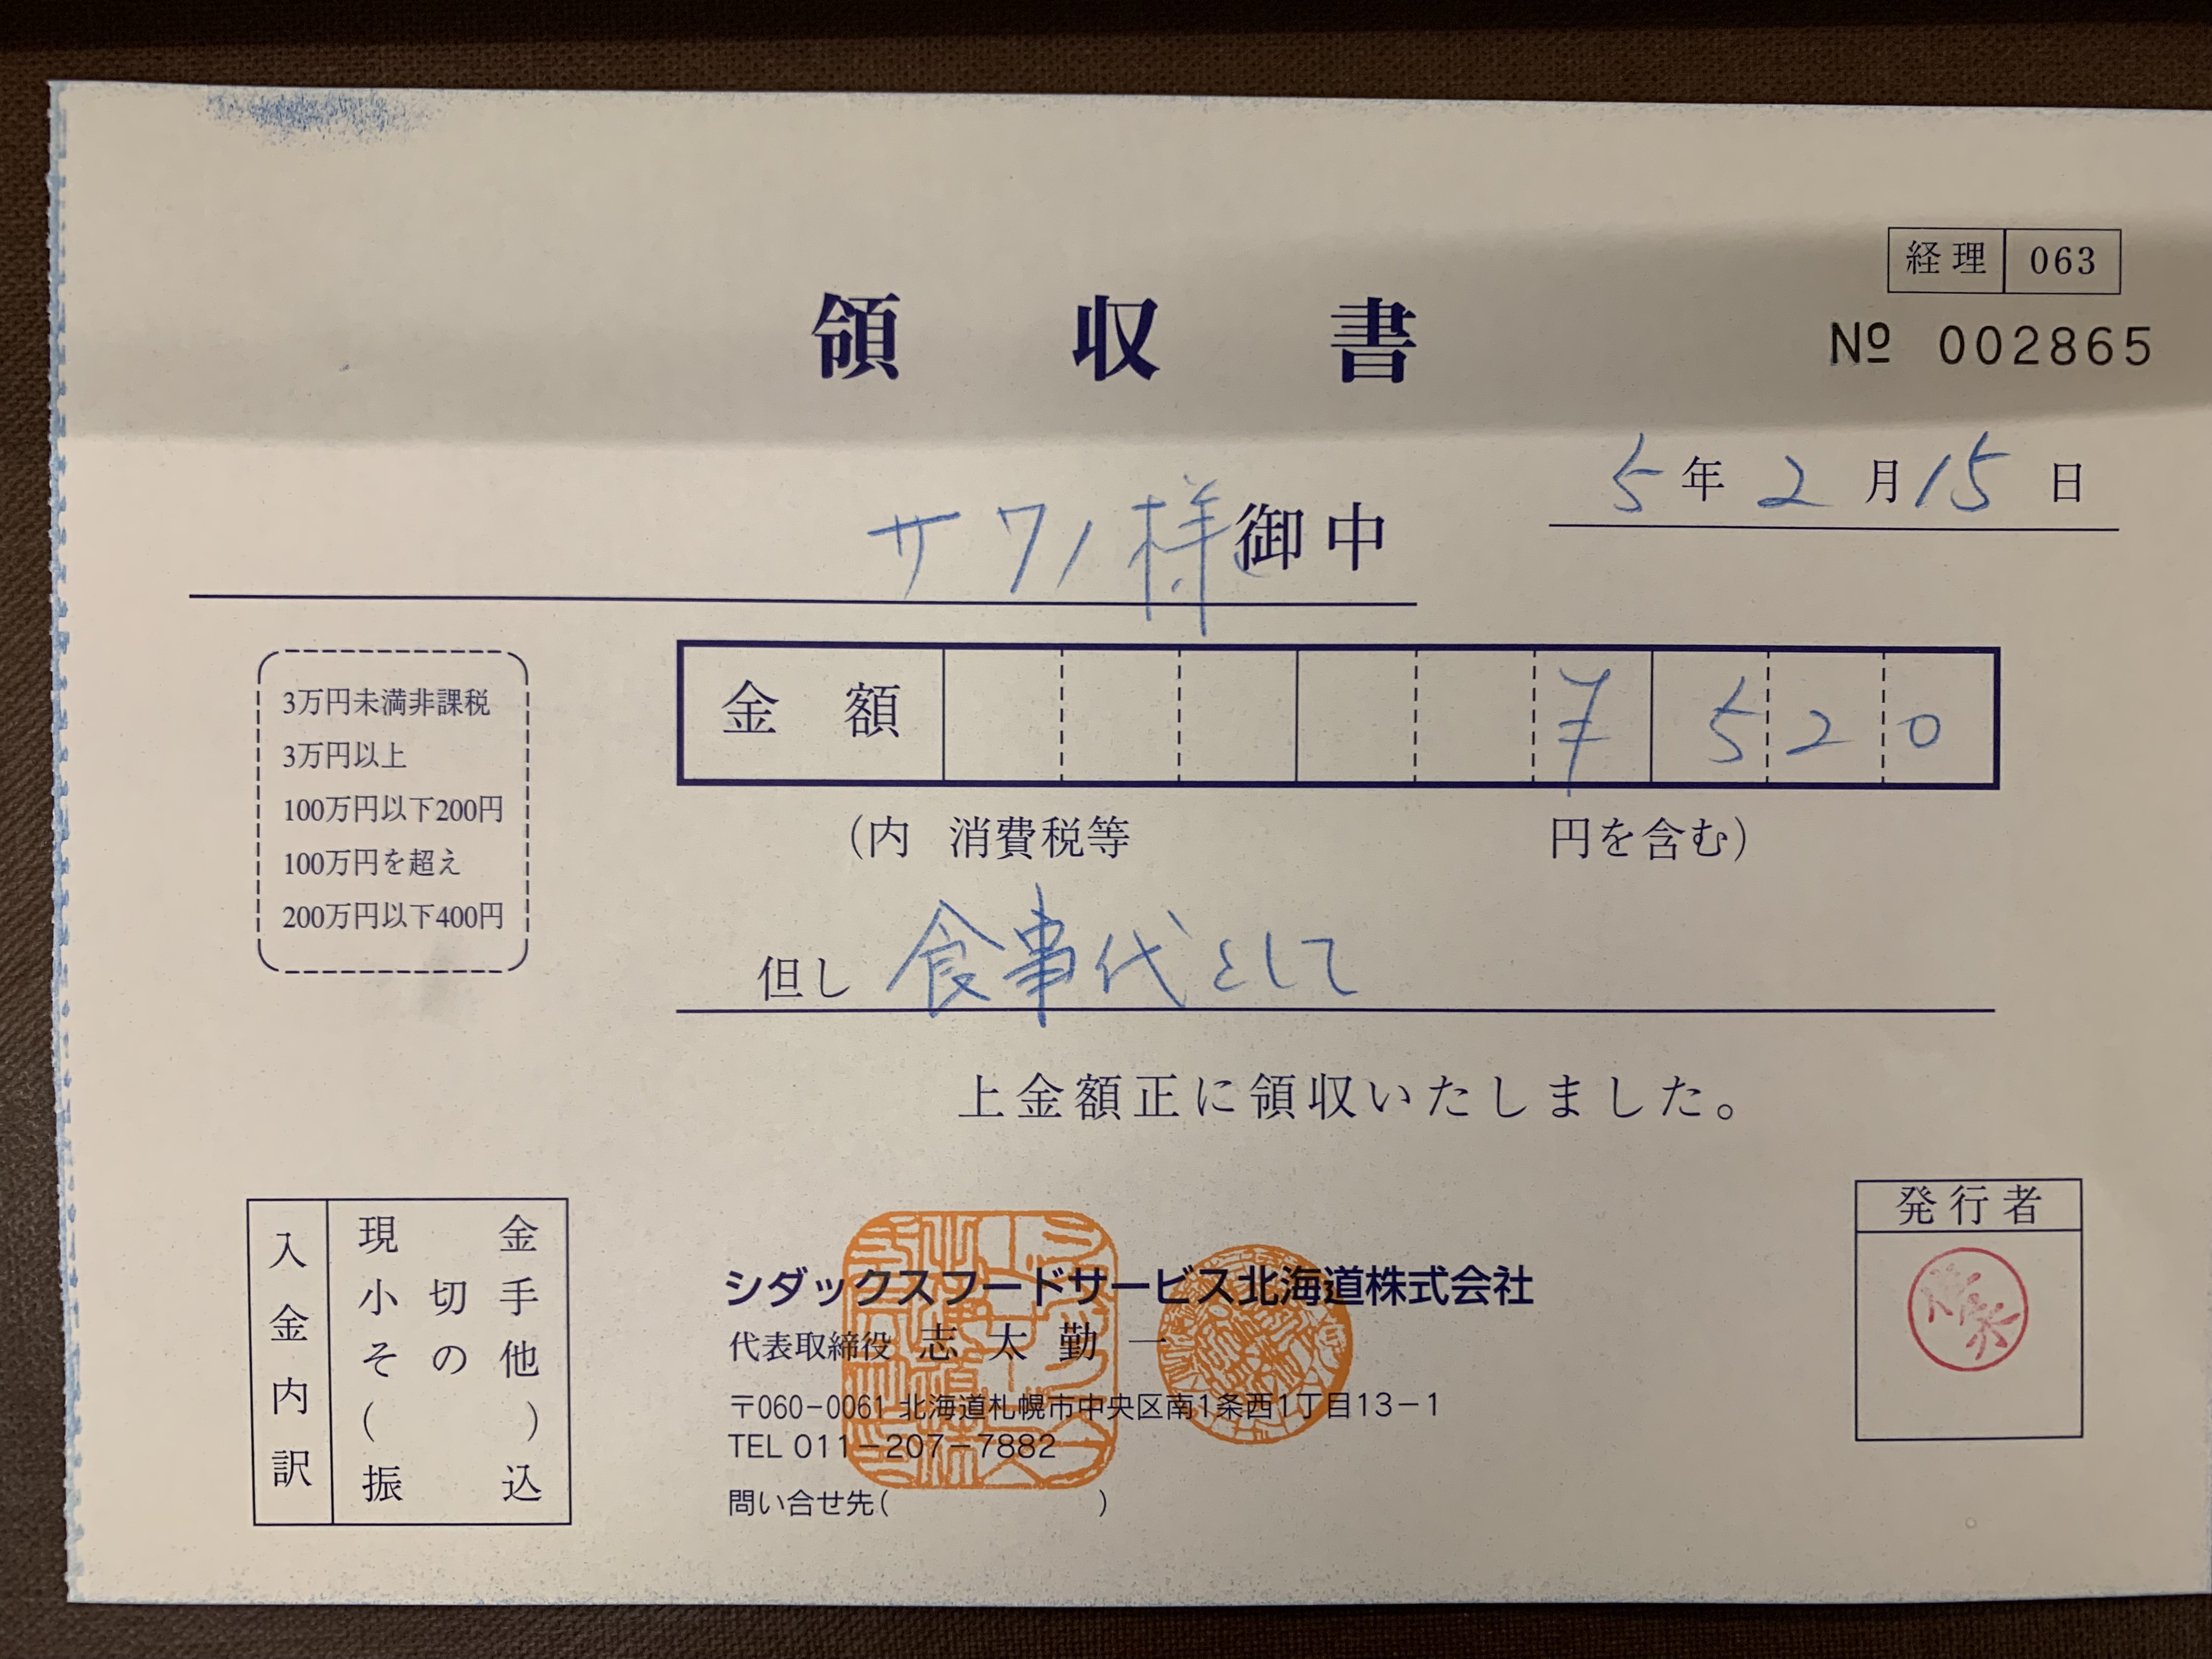 経理 063
領収書
№ 002865
5年2月15日
サワノ様御中
3万円未満非課税
3万円以上
100万円以下200円
100万円を超え
200万円以下400円
金額 ¥520
(内 消費税等 円を含む)
但し 食事代として
上金額正に領収いたしました。
入金内訳
現金
小切手
その他
( )
振込
シダックスフードサービス北海道株式会社
代表取締役 志太勤一
〒060-0061 北海道札幌市中央区南1条西1丁目13-1
TEL 011-207-7882
問い合せ先( )
発行者